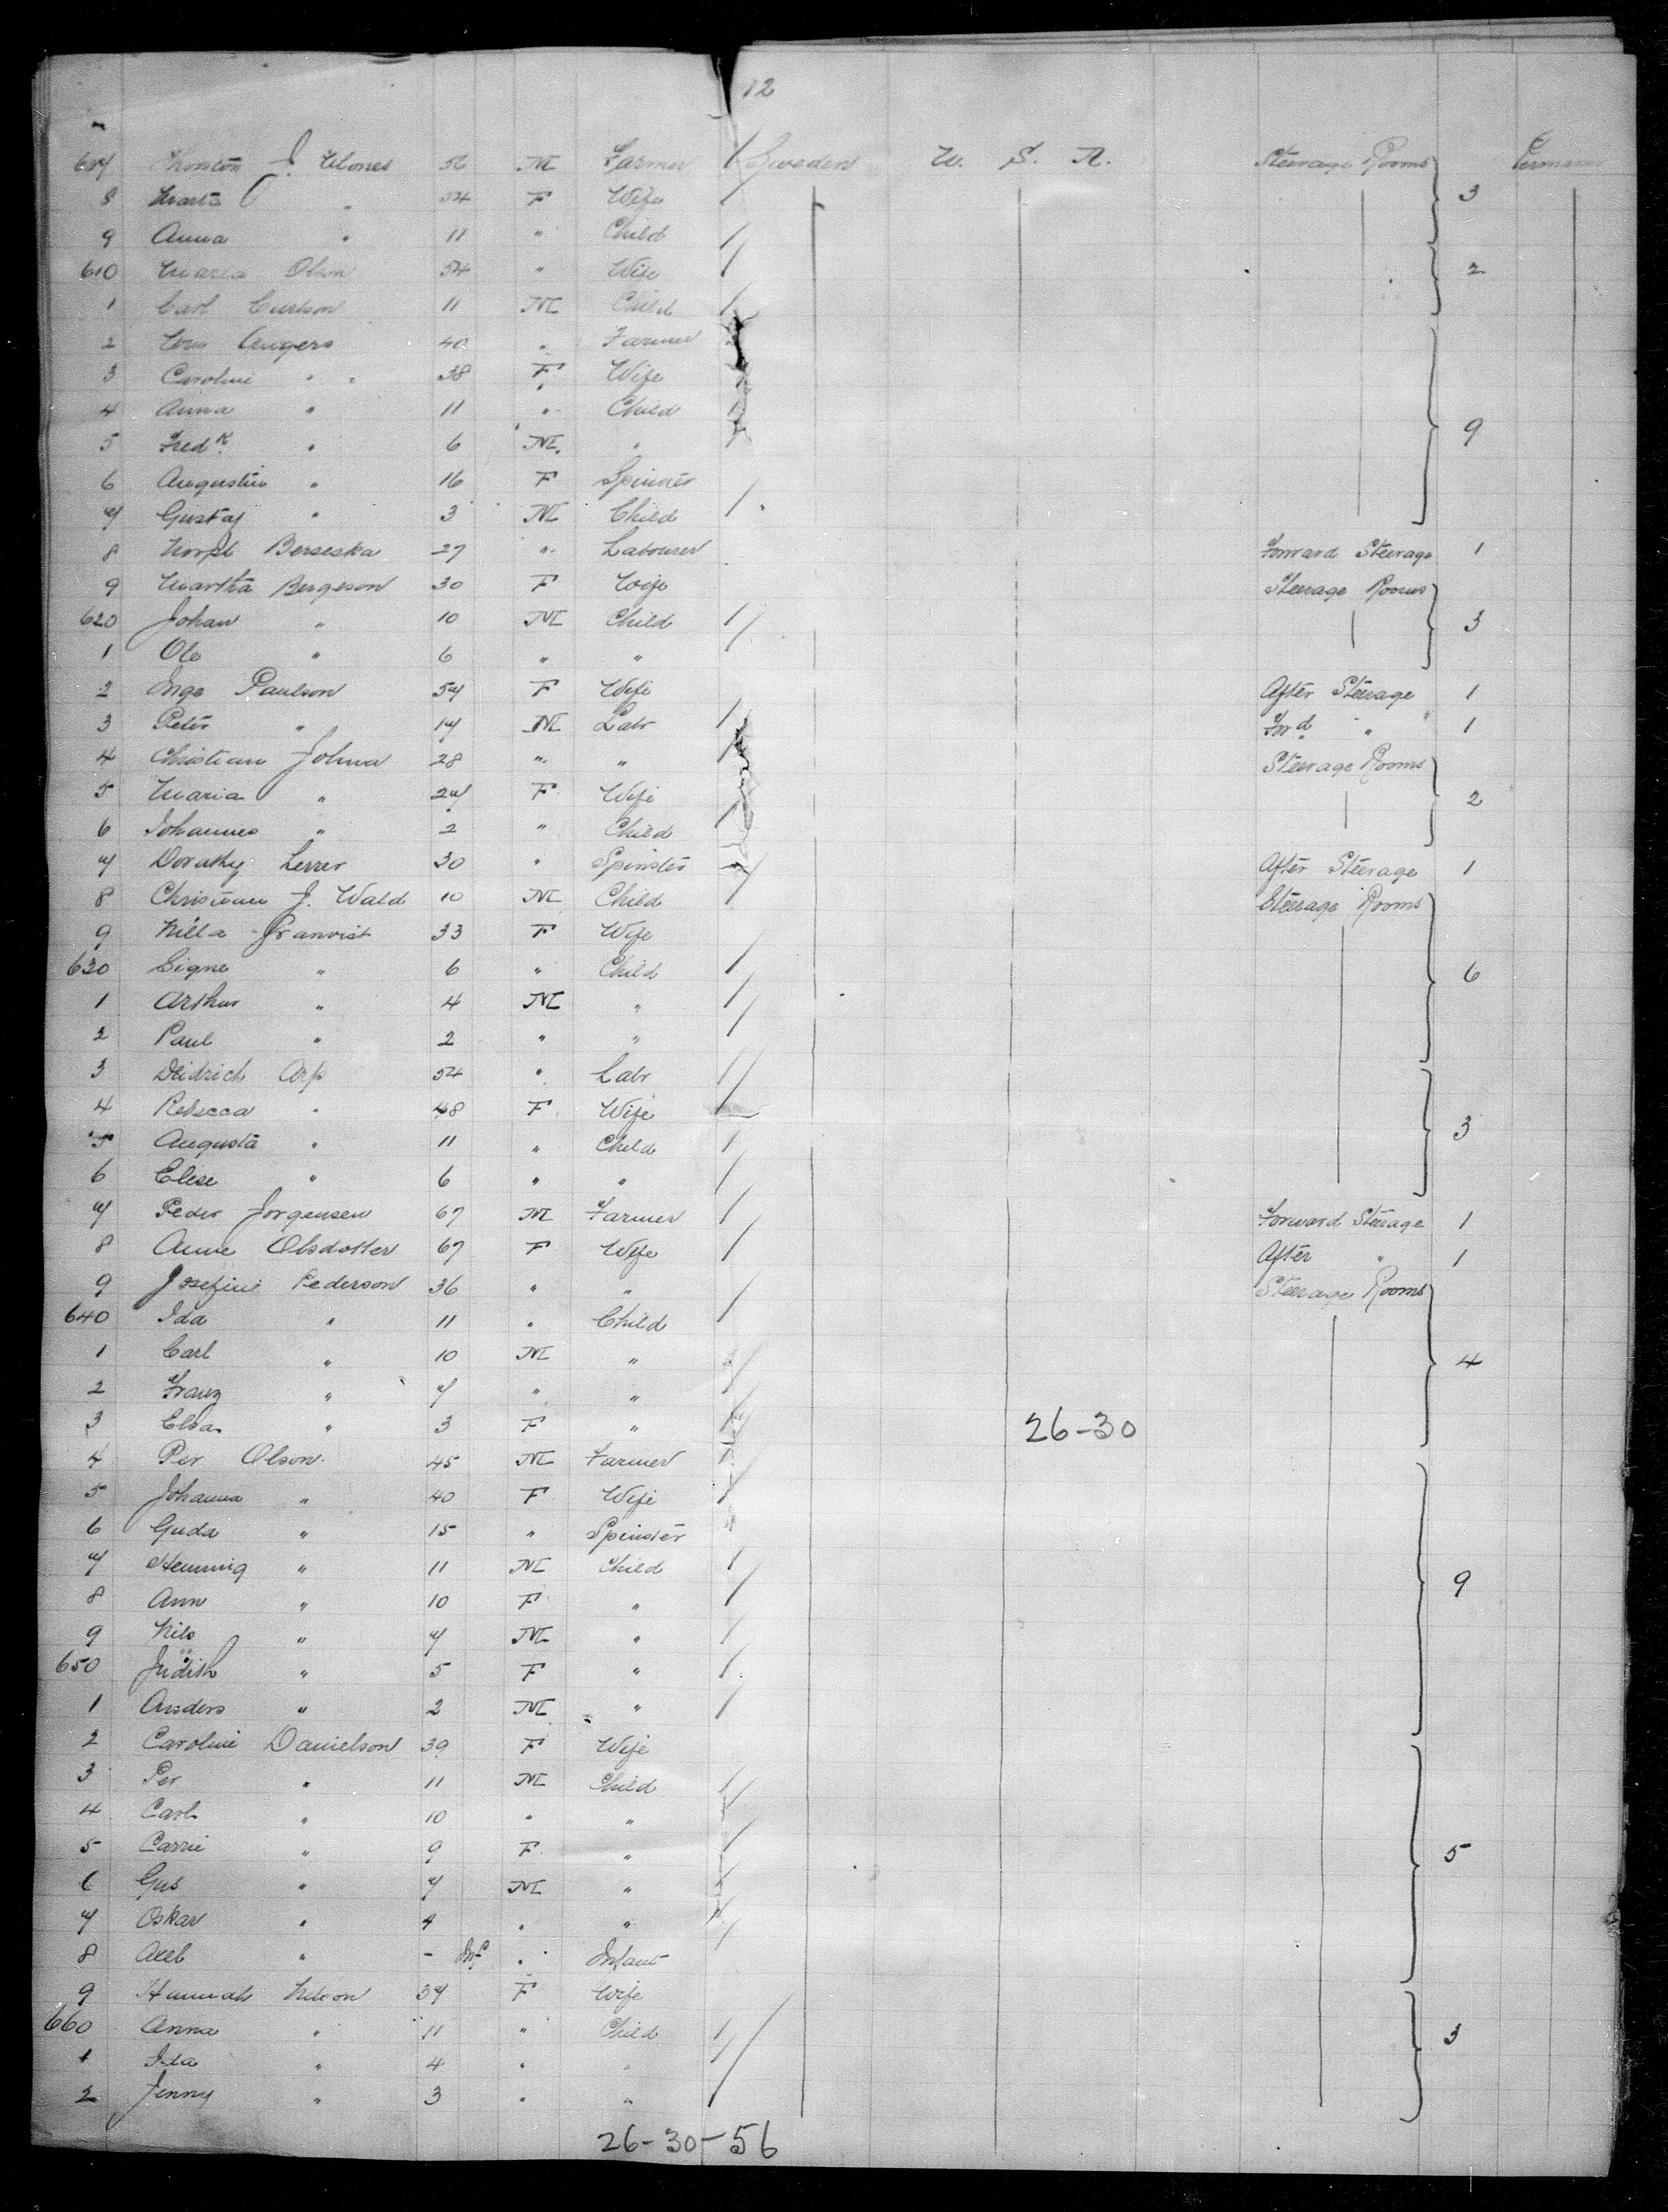 12
607 J. 56 M Farmer Sweden U. S. A. Steerage Rooms 3
8 Marta " 54 F Wife
9 Anna " 11 " Child
610 Maria Olson 54 " Wife 2
1 Carl Carlson 11 M Child
2 Angers 40 " Farmer
3 Caroline " " 38 F Wife
4 Anna " 11 " Child
5 Fredk " 6 M " 9
6 Augustin " 16 F Spinster
7 Gustaf " 3 M Child
8 Berseska 27 " Labourer Forward Steerage 1
9 Martha Bergeson 30 F Wife Steerage Rooms
620 Johan " 10 M Child 3
1 Ole " 6 " "
2 Inga Paulson 57 F Wife After Steerage 1
3 Peter " 17 M Labr Ford " 1
4 Christian Johna 28 " " Steerage Rooms
5 Maria " 27 F Wife 2
6 Johannes " 2 " Child
7 Dorathy Lerrer 30 " Spinster After Steerage 1
8 Christian J. Wald 10 M Child Steerage Rooms
9 Nilla Granvist 33 F Wife
630 Signe " 6 " Child 6
1 Arthur " 4 M "
2 Paul " 2 " "
3 Deidrich Arp 54 " Labr
4 Rebecca " 48 F Wife
5 Augusta " 11 " Child 3
6 Elese " 6 " "
7 Peder Jorgensen 67 M Farmer Forward Steerage 1
8 Anne Olsdotter 67 F Wife After " 1
9 Josefine Pederson 36 " " Steerage Rooms
640 Ida " 11 " Child
1 Carl " 10 M " 4
2 Franz " 7 " "
3 Elsa " 3 F " 26-30
4 Per Olson 45 M Farmer
5 Johanna " 40 F Wife
6 Guda " 15 " Spinster
7 Hemming " 11 M Child
8 Ann " 10 F " 9
9 Nils " 7 M "
650 Judith " 5 F "
1 Anders " 2 M "
2 Caroline Danielson 39 F Wife
3 Per " 11 M Child
4 Carl " 10 " "
5 Carrie " 9 F " 5
6 Gus " 7 M "
7 Oskar " 4 " "
8 Axel " - Inf " Infant
9 Hannah Nilson 37 F Wife
660 Anna " 11 " Child 3
1 Ida " 4 " "
2 Jenny " 3 " "
26-30-56